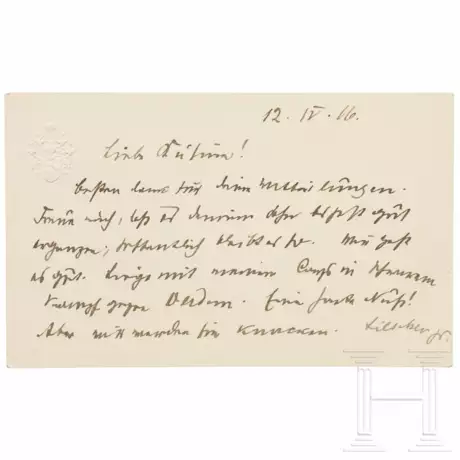 12. IV. 16.
Liebe Cusine!
Besten Dank für Deine Mitteilungen.
Freue mich, daß es Deinem Sohn bisher gut
ergangen; hoffentlich bleibt es so. Mir geht
es gut. Liege mit meinem Corps in schwerem
Kampf gegen Verdun. Eine harte Nuß!
Aber wir werden sie knacken.